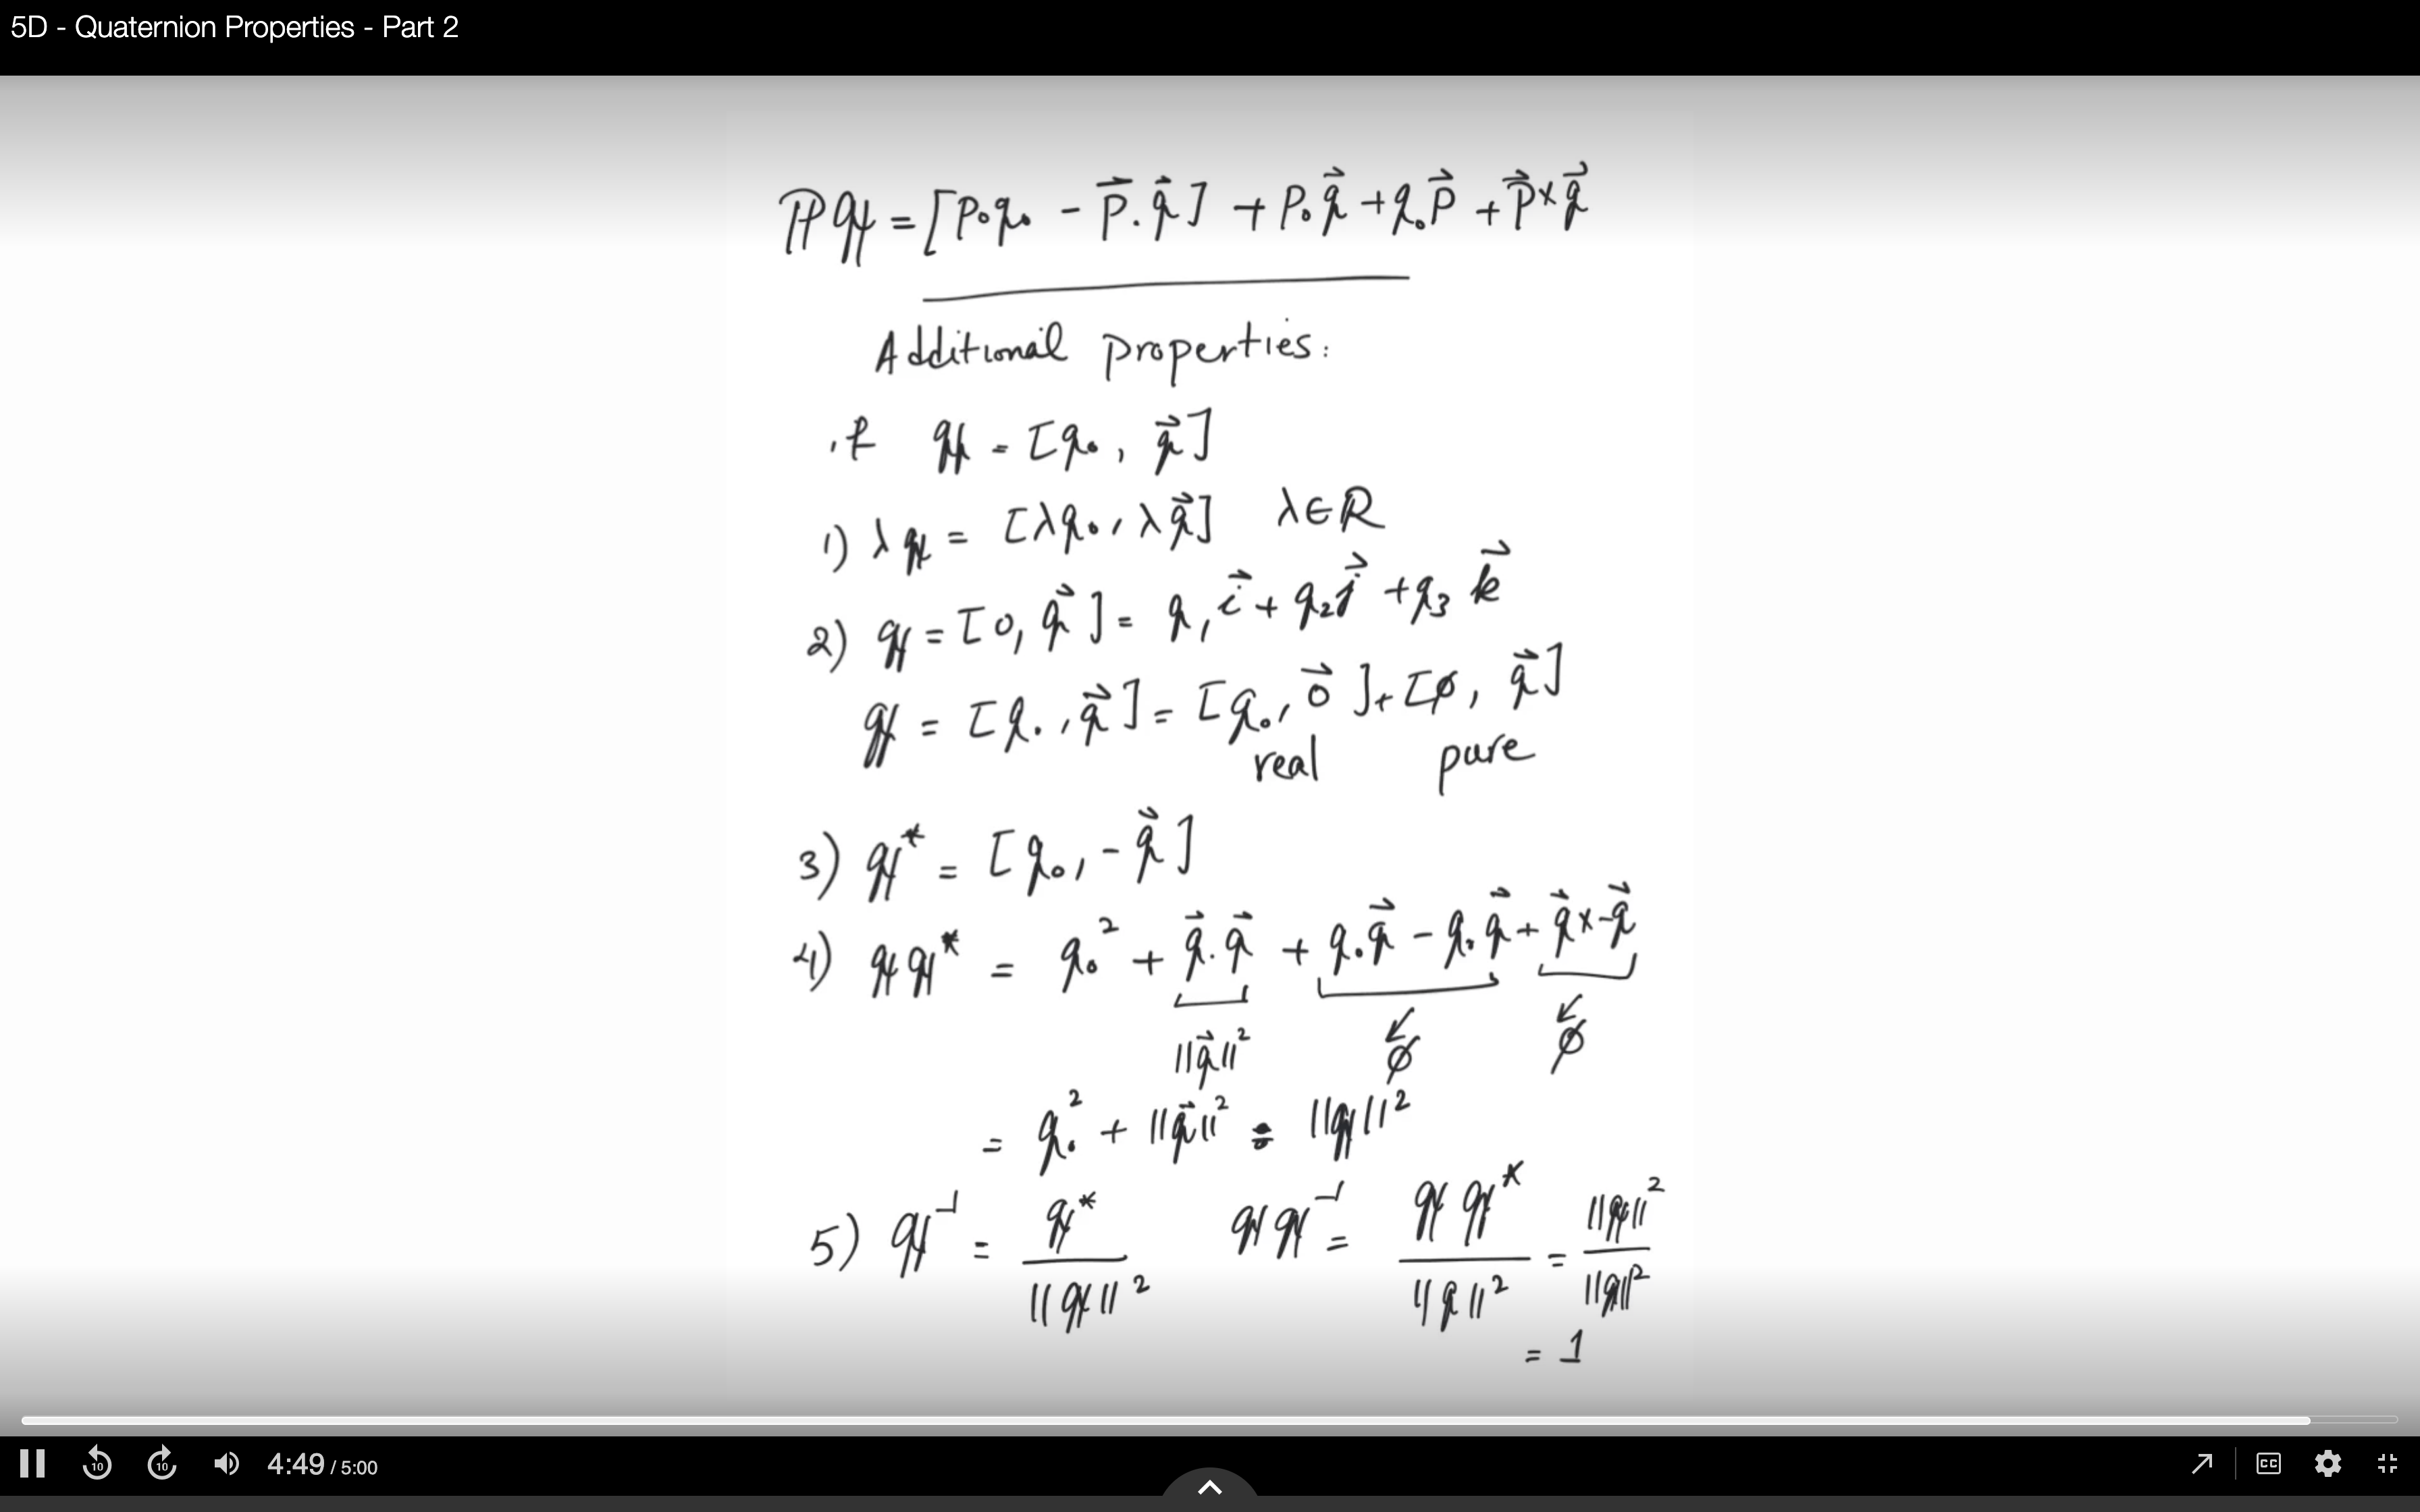 5D - Quaternion Properties - Part 2
ℙ𝕢 = [p₀q₀ - p⃗.q⃗] + p₀q⃗ + q₀p⃗ + p⃗×q⃗
Additional properties:
if 𝕢 = [q₀, q⃗]
1) λ𝕢 = [λq₀, λq⃗] λ∈ℝ
2) 𝕢 = [0, q⃗] = q₁i⃗ + q₂j⃗ + q₃k⃗
𝕢 = [q₀, q⃗] = [q₀, 0⃗] + [∅, q⃗]
real pure
3) 𝕢* = [q₀, -q⃗]
4) 𝕢𝕢* = q₀² + q⃗.q⃗ + q₀q⃗ - q₀q⃗ + q⃗×-q⃗
||q⃗||² ∅ ∅
= q₀² + ||q⃗||² = ||𝕢||²
5) 𝕢⁻¹ = 𝕢* / ||𝕢||² 𝕢𝕢⁻¹ = 𝕢𝕢* / ||𝕢||² = ||𝕢||² / ||𝕢||²
= 1
10 10 4:49 / 5:00 CC